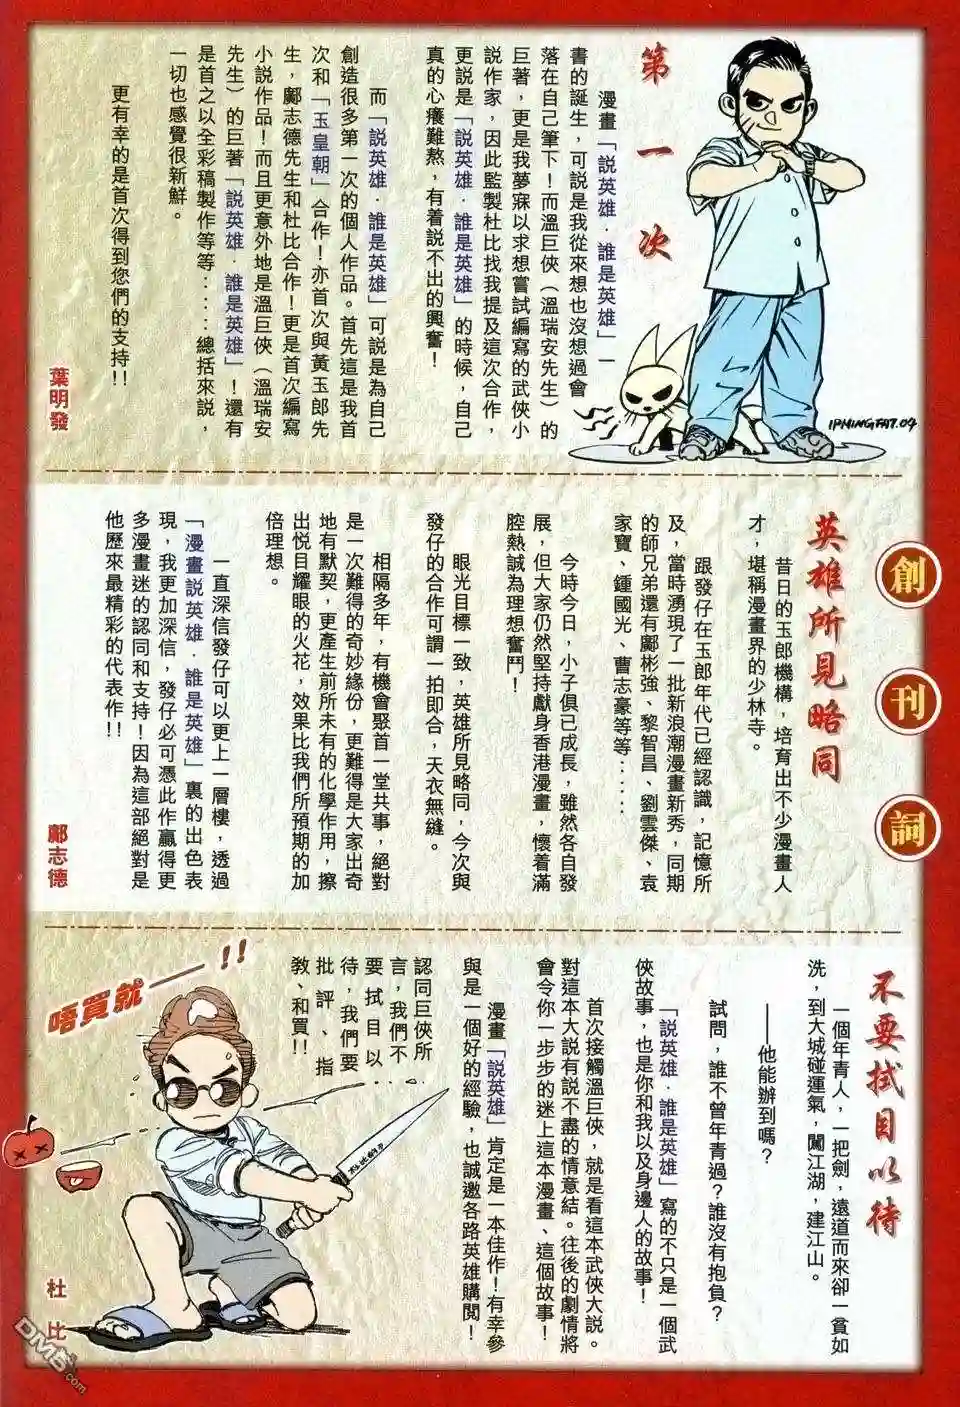 創刊詞
第一次
漫畫「説英雄．誰是英雄」一
書的誕生，可説是我從來想也沒想過會
落在自己筆下！而溫巨俠（溫瑞安先生）的
巨著，更是我夢寐以求想嘗試編寫的武俠小
説作家，因此監製杜比找我提及這次合作，
更説是「説英雄．誰是英雄」的時候，自己
真的心癢難熬，有着説不出的興奮！
而「説英雄．誰是英雄」可説是為自己
創造很多第一次的個人作品。首先這是我首
次和「玉皇朝」合作！亦首次與黃玉郎先
生，鄺志德先生和杜比合作！更是首次編寫
小説作品！而且更意外地是溫巨俠（溫瑞安
先生）的巨著「説英雄．誰是英雄」！還有
是首之以全彩稿製作等等……總括來説，
一切也感覺很新鮮。
更有幸的是首次得到您們的支持！！
葉明發
IPMINGFAT.04
英雄所見略同
昔日的玉郎機構，培育出不少漫畫人
才，堪稱漫畫界的少林寺。
跟發仔在玉郎年代已經認識，記憶所
及，當時湧現了一批新浪潮漫畫新秀，同期
的師兄弟還有鄺彬強、黎智昌、劉雲傑、袁
家寶、鍾國光、曹志豪等等……
今時今日，小子俱已成長，雖然各自發
展，但大家仍然堅持獻身香港漫畫，懷着滿
腔熱誠為理想奮鬥！
眼光目標一致，英雄所見略同，今次與
發仔的合作可謂一拍即合，天衣無縫。
相隔多年，有機會聚首一堂共事，絕對
是一次難得的奇妙緣份，更難得是大家出奇
地有默契，更產生前所未有的化學作用，擦
出悦目耀眼的火花，效果比我們所預期的加
倍理想。
一直深信發仔可以更上一層樓，透過
「漫畫説英雄．誰是英雄」裏的出色表
現，我更加深信，發仔必可憑此作贏得更
多漫畫迷的認同和支持！因為這部絕對是
他歷來最精彩的代表作！！
鄺志德
不要拭目以待
一個年青人，一把劍，遠道而來卻一貧如
洗，到大城碰運氣，闖江湖，建江山。
——他能辦到嗎？
試問，誰不曾年青過？誰沒有抱負？
「説英雄．誰是英雄」寫的不只是一個武
俠故事，也是你和我以及身邊人的故事！
首次接觸溫巨俠，就是看這本武俠大説。
對這本大説有説不盡的情意結。往後的劇情將
會令你一步步的迷上這本漫畫、這個故事！
漫畫「説英雄」肯定是一本佳作！有幸參
與是一個好的經驗，也誠邀各路英雄購閱！
認同巨俠所
言，我們不
要拭目以
待，我們要
批評、指
教、和買！！
唔買就——！！
杜比
DM5.com